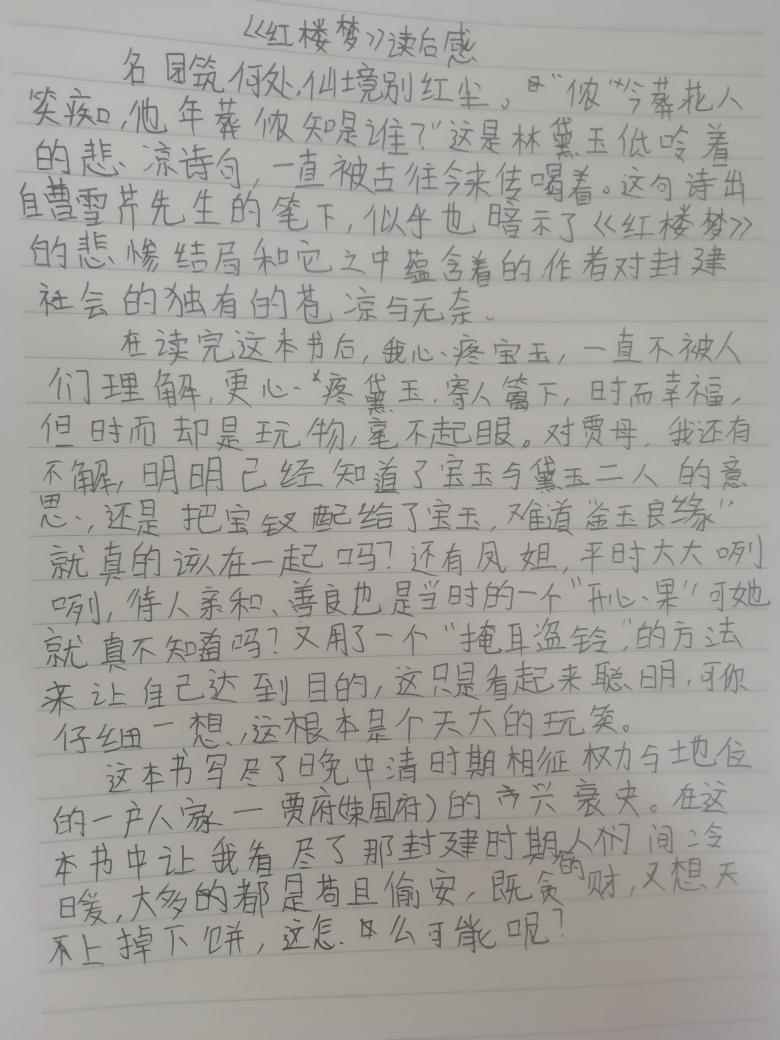 《红楼梦》读后感
名园筑何处,仙境别红尘。"侬今葬花人
笑痴,他年葬侬知是谁?"这是林黛玉低呤着
的悲凉诗句,一直被古往今来传喝着。这句诗出
自曹雪芹先生的笔下,似乎也暗示了《红楼梦》
的悲惨结局和它之中蕴含着的作者对封建
社会的独有的苍凉与无奈。
在读完这本书后,我心疼宝玉,一直不被人
们理解,更心疼黛玉,寄人篱下,时而幸福,
但时而却是玩物,毫不起眼。对贾母,我还有
不解,明明已经知道了宝玉与黛玉二人的意
思,还是把宝钗配给了宝玉,难道"金玉良缘"
就真的该在一起吗?还有凤姐,平时大大咧
咧,待人亲和、善良也是当时的一个"开心果"可她
就真不知道吗?又用了一个"掩耳盗铃"的方法
来让自己达到目的,这只是看起来聪明,可你
仔细一想,这根本是个天大的玩笑。
这本书写尽了晚中清时期相征权力与地位
的一户人家一贾府(荣国府)的兴衰史。在这
本书中让我看尽了那封建时期人们间冷
暖,大多的都是苟且偷安,既贪的财,又想天
不上掉下饼,这怎么可能呢?